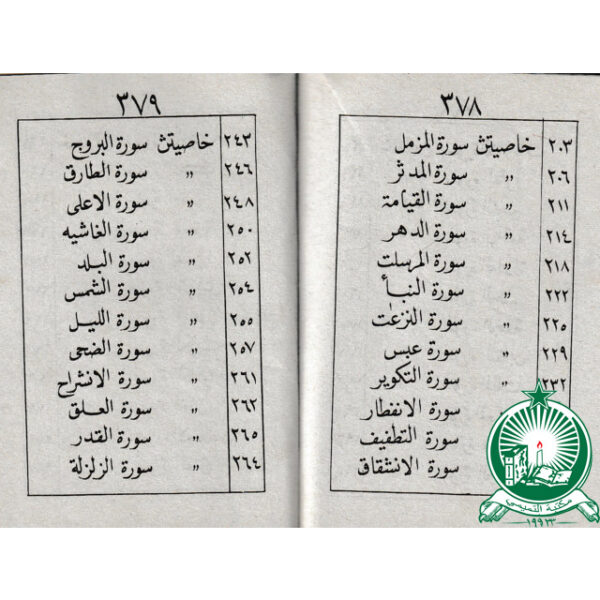 ٣٧٨
٢٠٣ خاصيتڽ سورة المزمل
٢٠٦ " سورة المدثر
٢١١ " سورة القيامة
٢١٤ " سورة الدهر
٢١٨ " سورة المرسلت
٢٢٢ " سورة النبأ
٢٢٥ " سورة النزعٰت
٢٢٩ " سورة عبس
٢٣٢ " سورة التكوير
" سورة الانفطار
سورة التطفيف
سورة الانشقاق
٣٧٩
٢٤٣ خاصيتڽ سورة البروج
٢٤٦ " سورة الطارق
٢٤٨ " سورة الاعلى
٢٥٠ " سورة الغاشيه
٢٥٢ " سورة البلد
٢٥٤ " سورة الشمس
٢٥٥ " سورة الليل
٢٥٧ " سورة الضحى
٢٦١ " سورة الانشراح
٢٦٢ " سورة العلق
٢٦٥ " سورة القدر
٢٦٤ " سورة الزلزلة
مكتبة